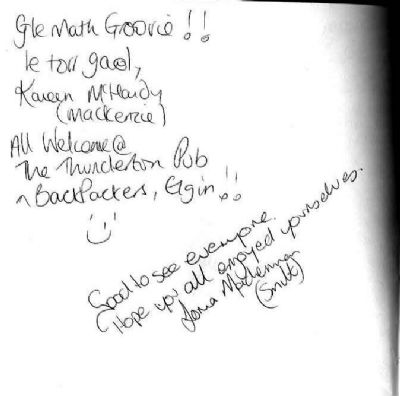 Gle Math Groovie !!
le torr gaol,
Kareen McHardy
(Mackenzie)
All Welcome @
The Thunderton Pub
n Backpackers, Elgin !!
Good to see everyone.
Hope you all enjoyed yourselves.
Iona Maclennan
(Smith)